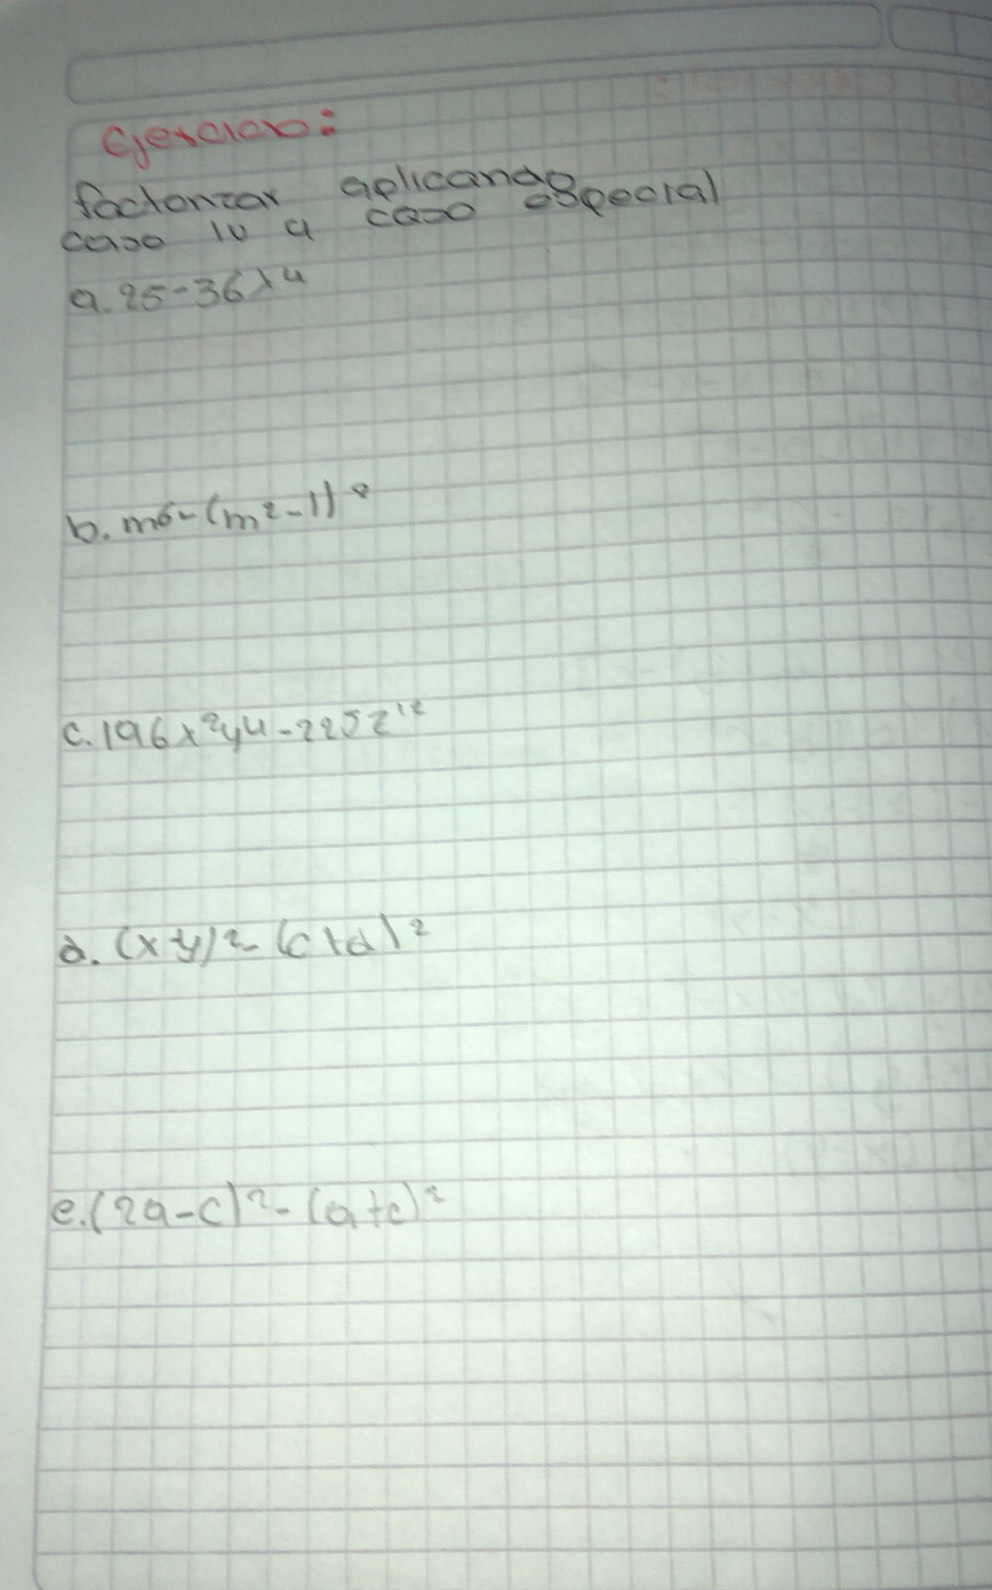 Ejercicio:
factorizar aplicando
caso IV a caso especial
a. 25-36x⁴
b. m⁶-(m²-1)²
c. 196x²y⁴-225z¹²
d. (x-y)²-(c+d)²
e. (2a-c)²-(a+c)²